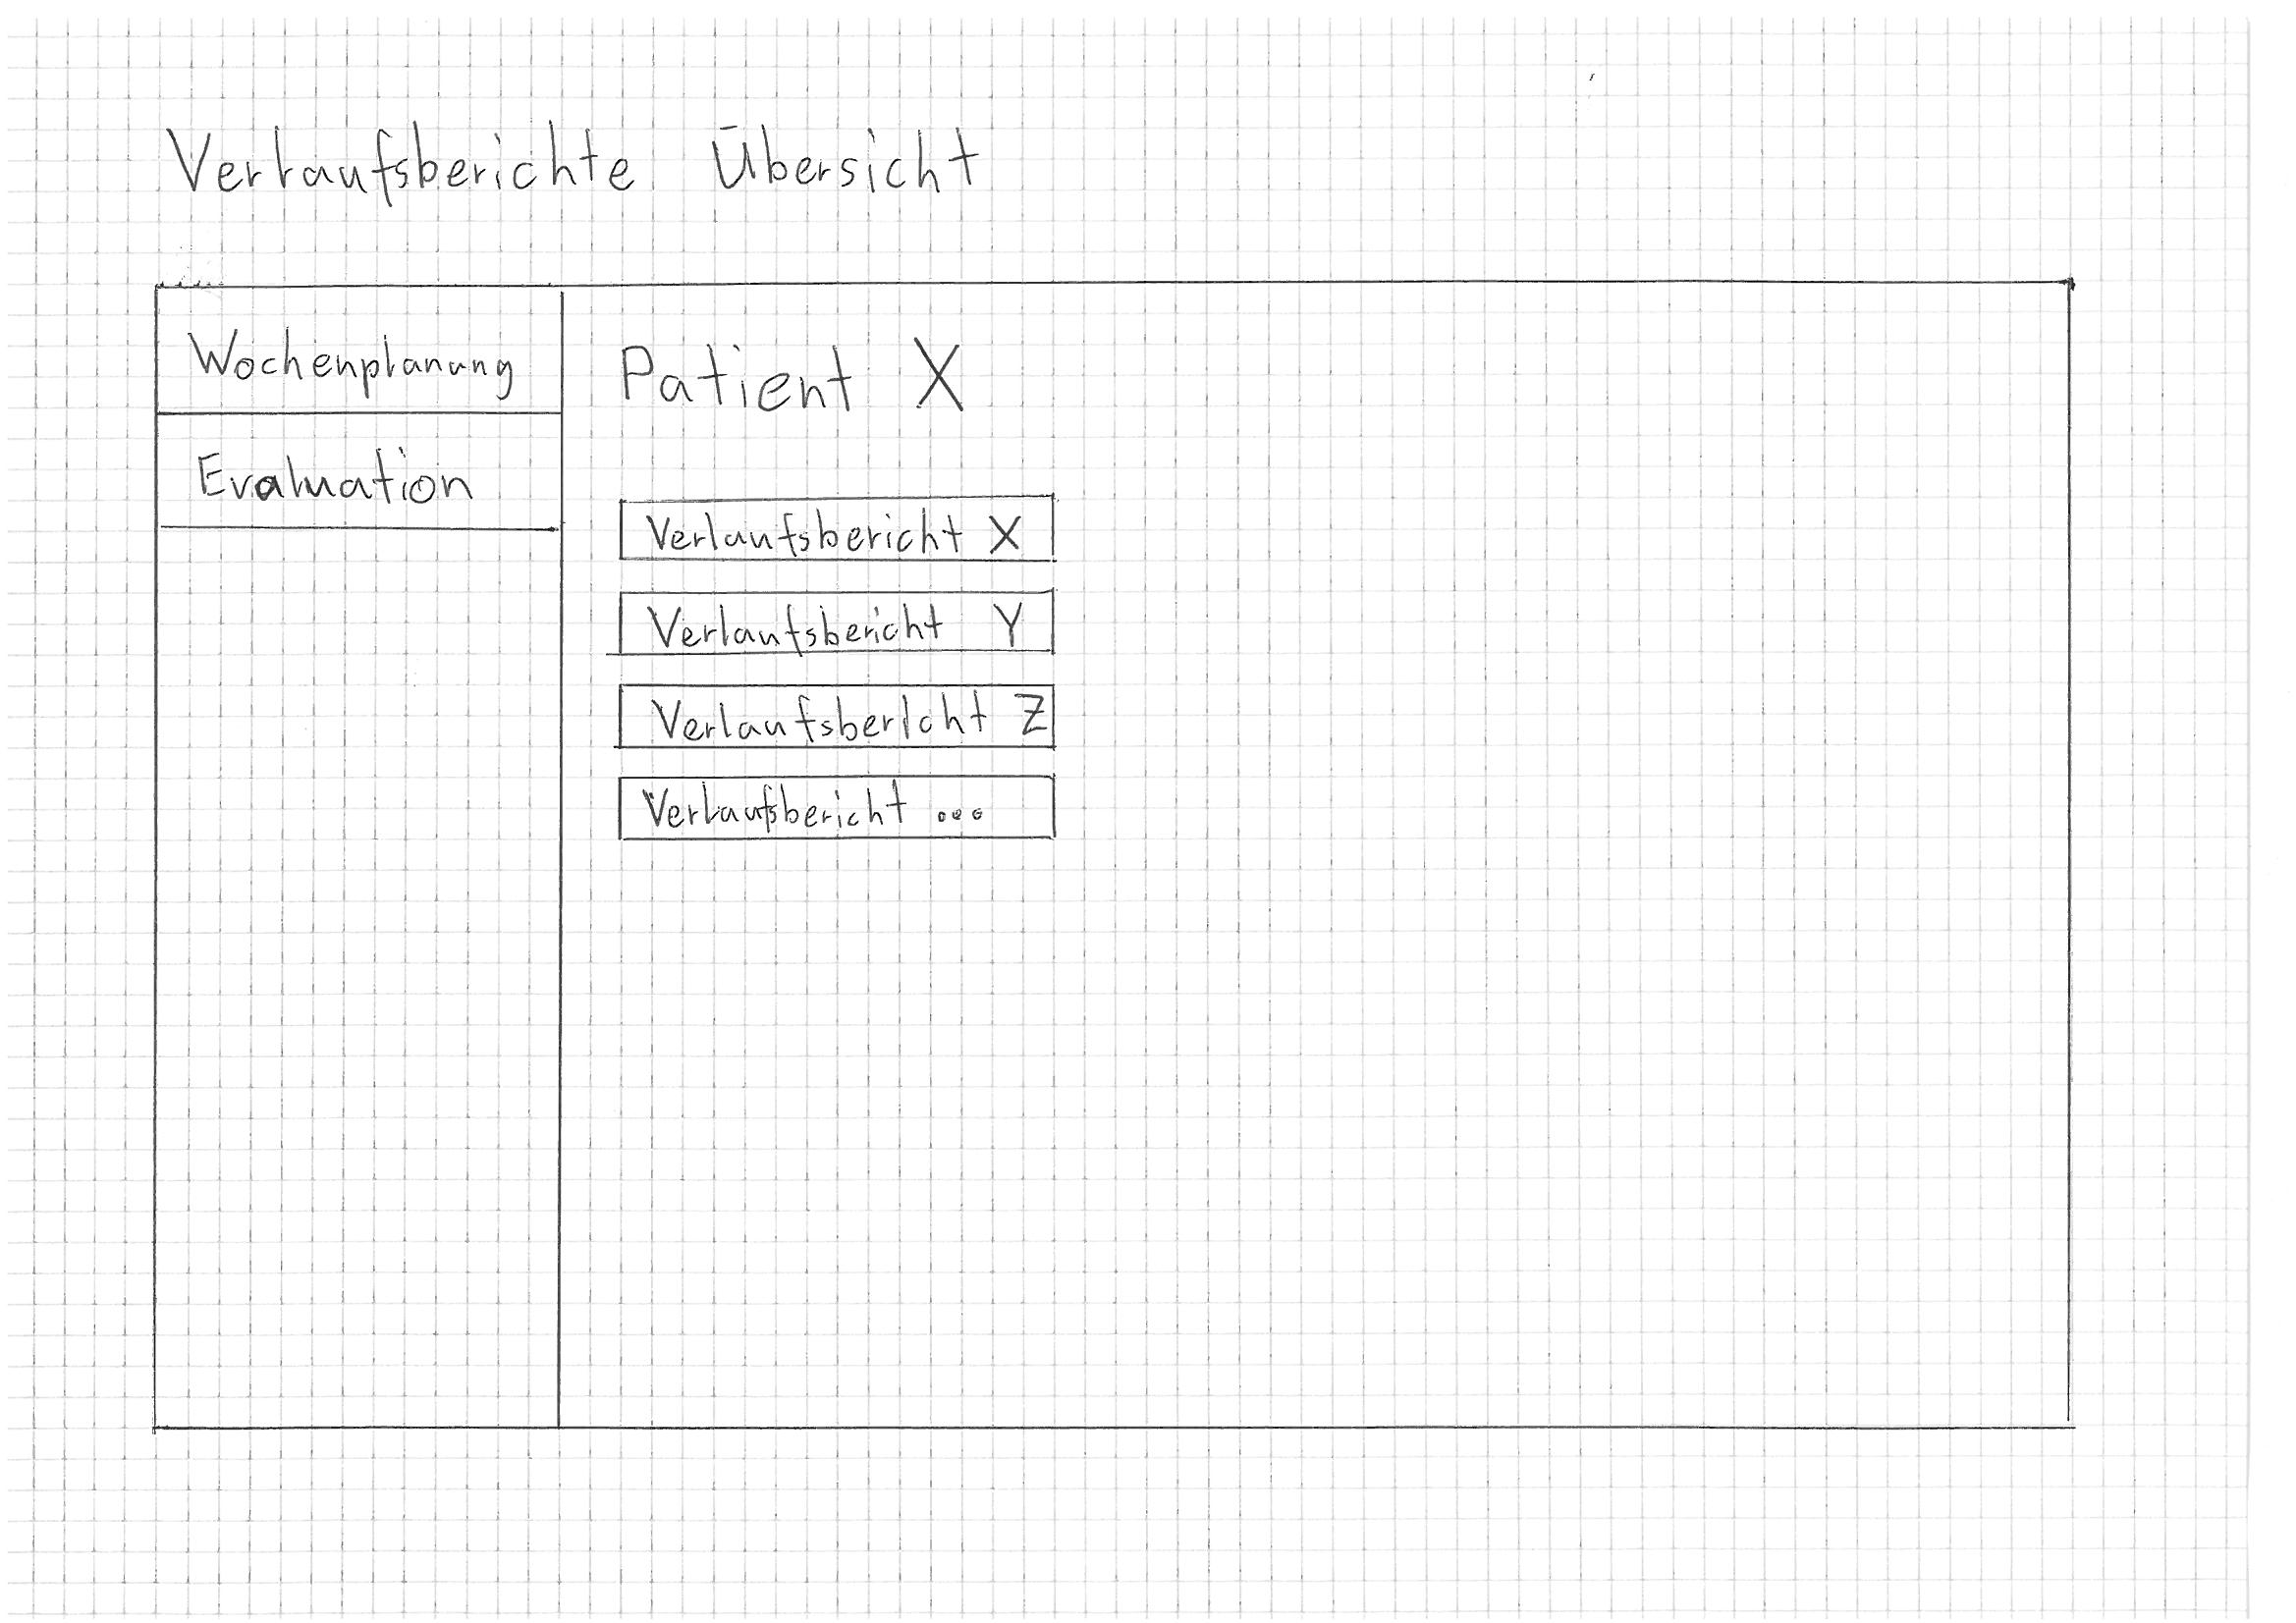 Verlaufsberichte Übersicht
Wochenplanung
Evaluation
Patient X
Verlaufsbericht X
Verlaufsbericht Y
Verlaufsbericht Z
Verlaufsbericht ...